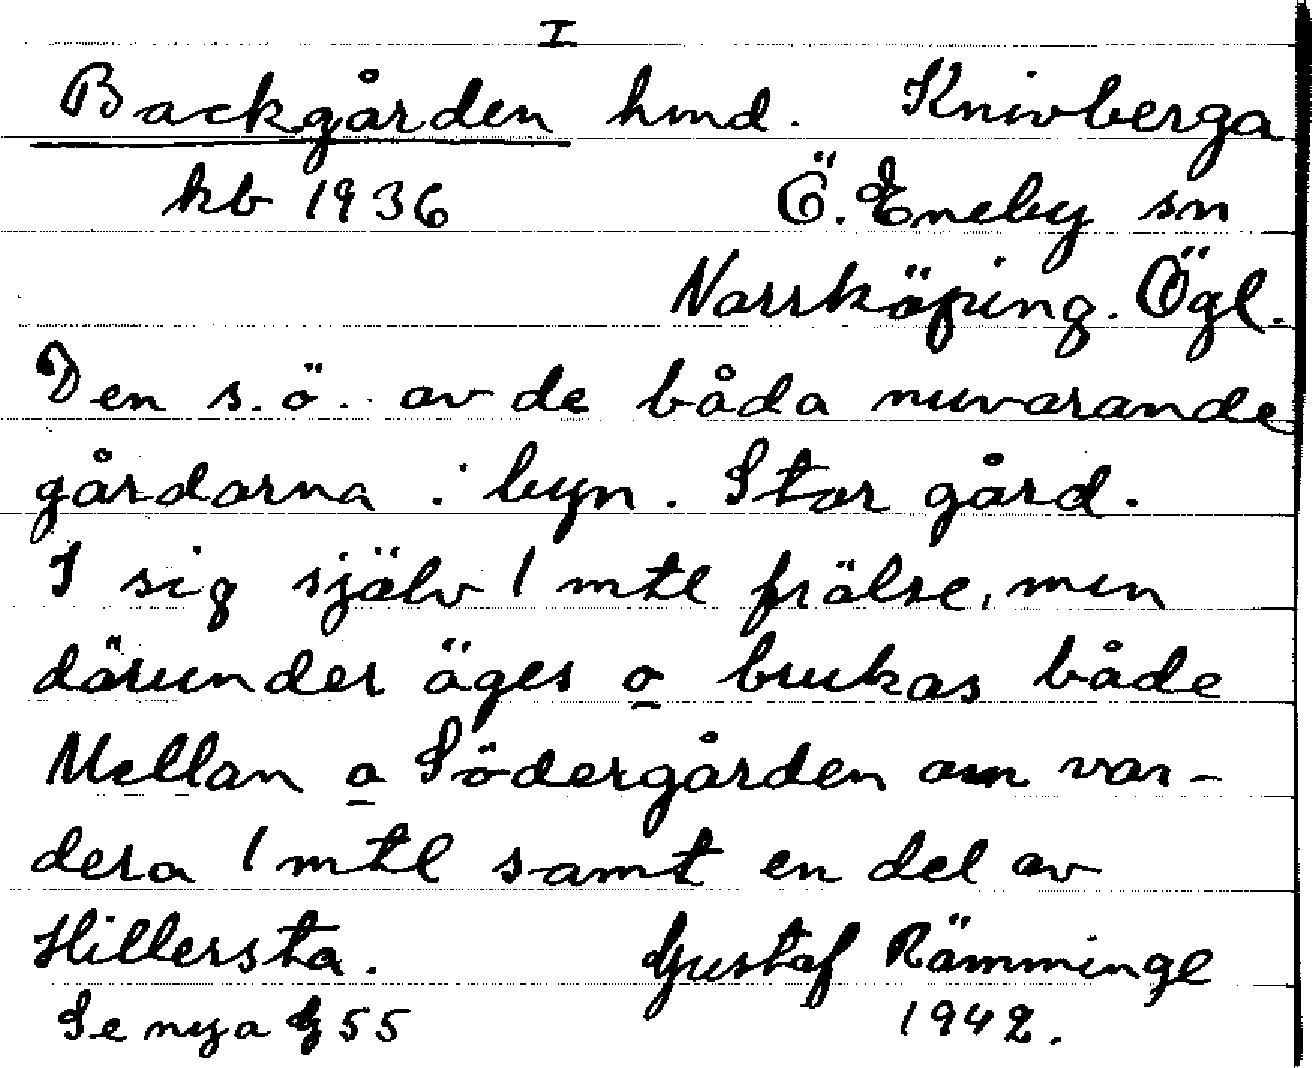 I
Backgården hmd. Knivberga
kb 1936 Ö. Eneby sn
Norrköping. Ögl.
Den s.ö. av de båda nuvarande
gårdarna i byn. Stor gård.
I sig själv 1 mtl frälse, men
därunder äges o brukas både
Mellan o Södergården om var-
dera 1 mtl samt en del av
Hillersta. Gustaf Rämminge
Se nya G 55 1942.